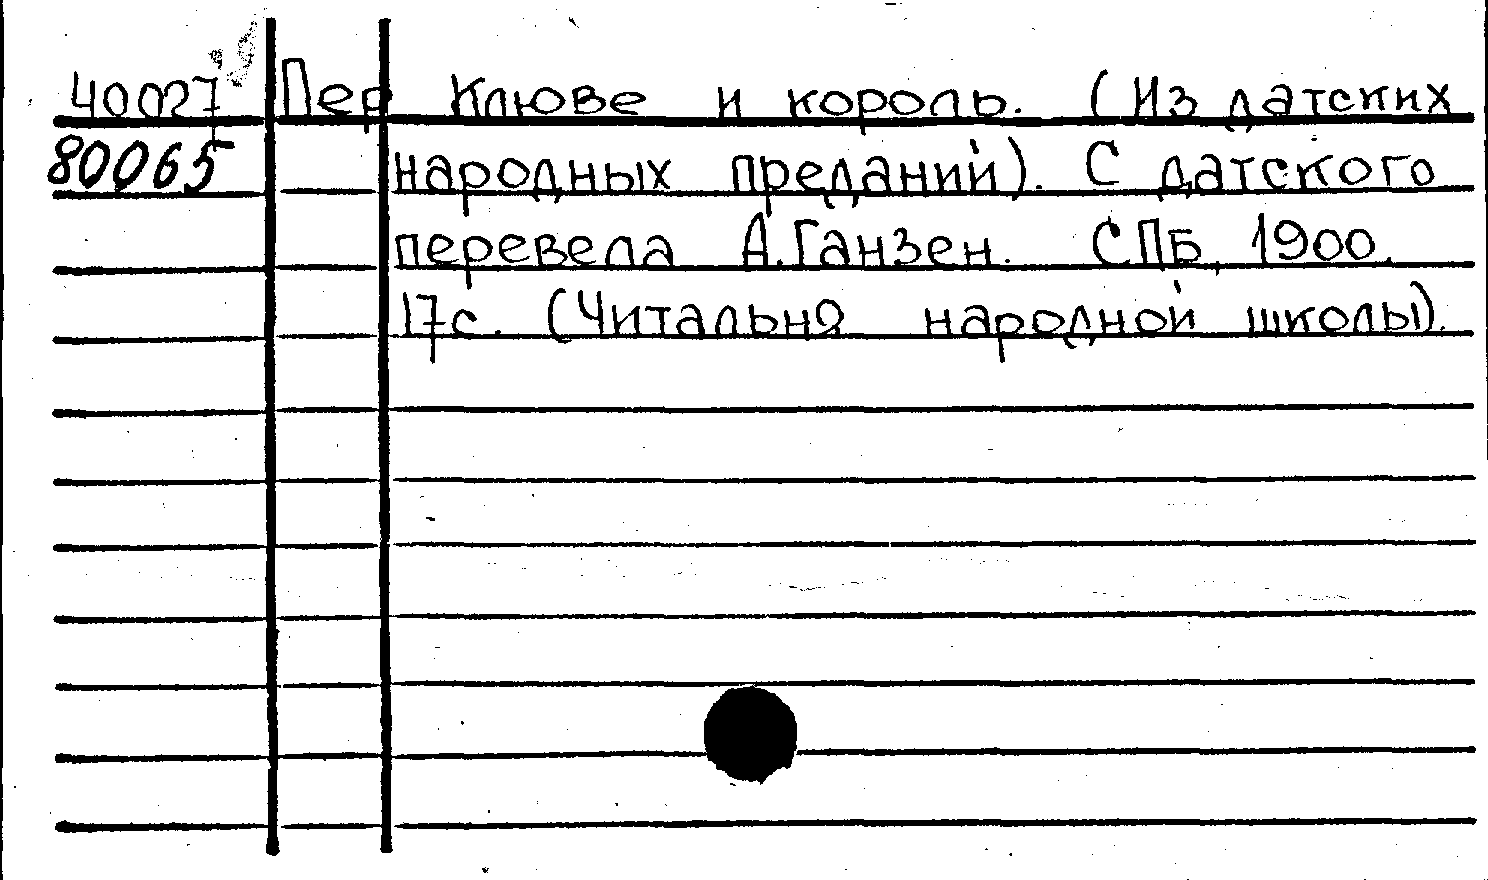 40027 Пер Клюве и король. (Из датских
80065 народных преданий). С датского
перевела А.Ганзен. СПБ, 1900.
17с. (Читальня народной школы).